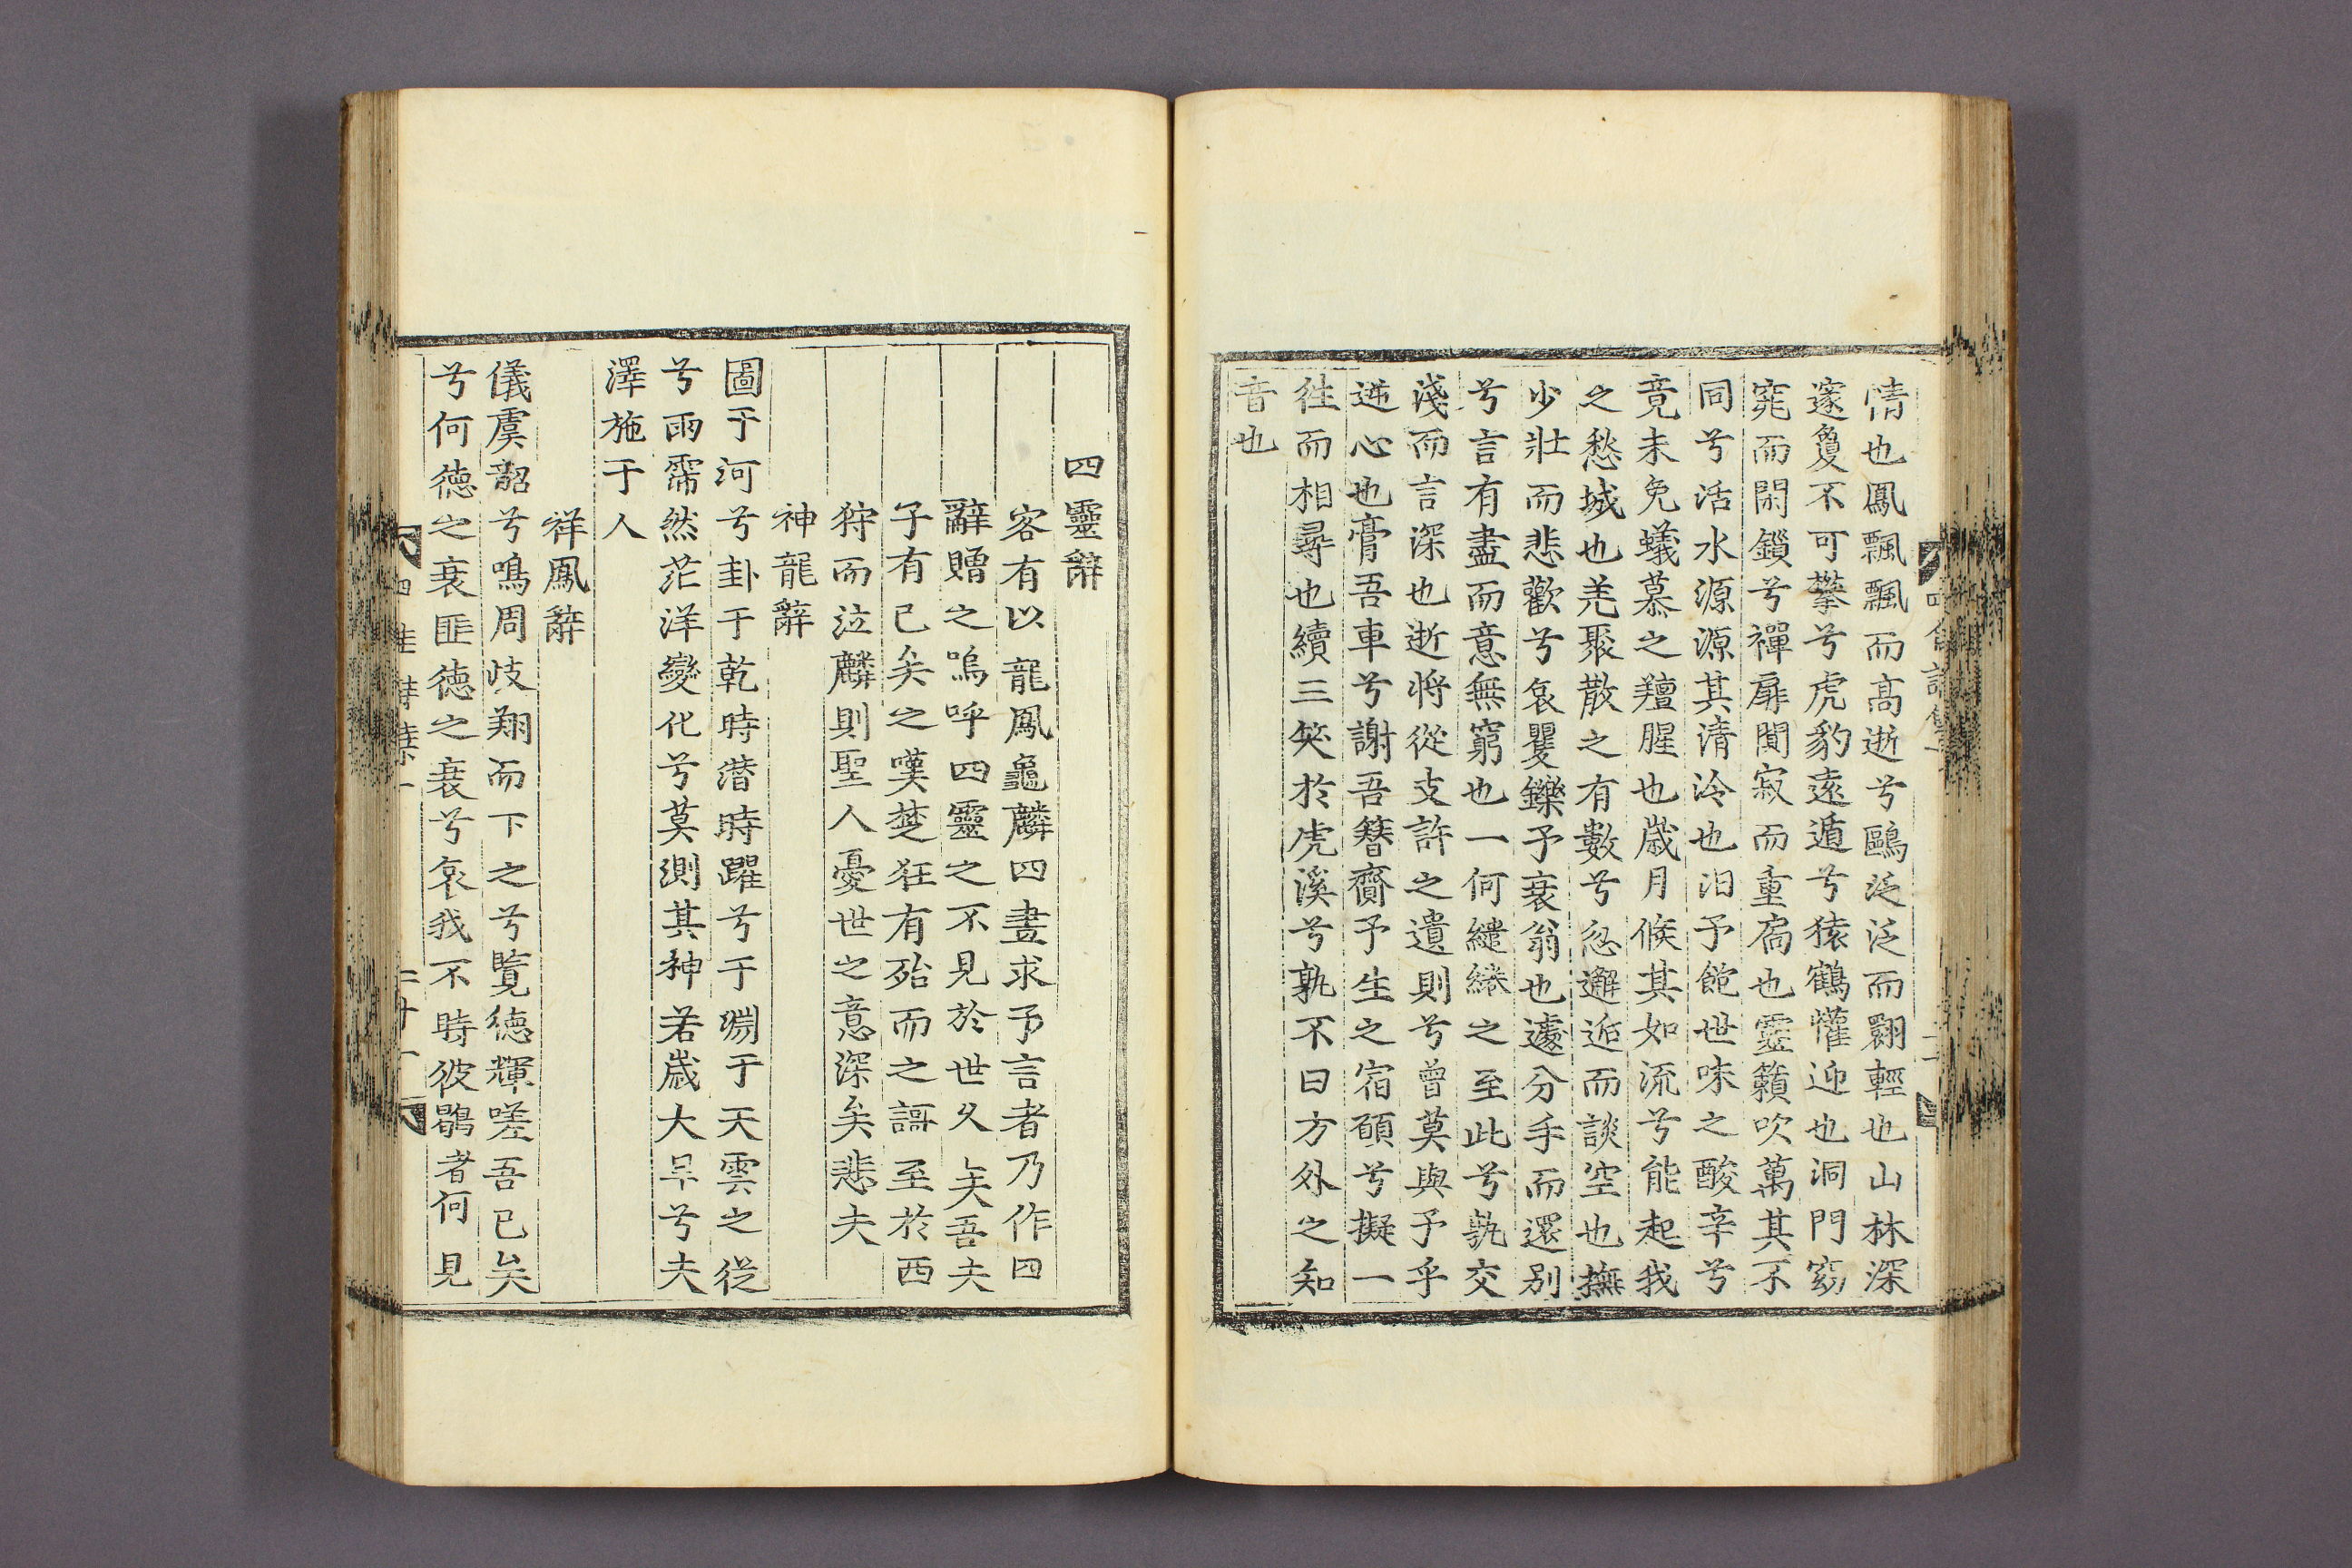 情也鳳飄飄而高逝兮鷗泛泛而翾輕也山林深
邃敻不可攀兮虎豹遠遁兮猿鶴懽迎也洞門窈
窕而閑鎖兮禪扉闃寂而重扃也靈籟吹萬其不
同兮活水源源其清泠也汨予飽世味之酸辛兮
竟未免蟻慕之羶腥也歲月倏其如流兮能起我
之愁城也羌聚散之有數兮忽邂逅而談空也撫
少壯而悲歡兮哀矍鑠予衰翁也遽分手而還別
兮言有盡而意無窮也一何繾綣之至此兮孰交
淺而言深也逝將從支許之遺則兮曾莫與予乎
逆心也膏吾車兮謝吾簪齎予生之宿願兮擬一
徃而相尋也續三笑於虎溪兮孰不曰方外之知
音也
四靈辭
客有以龍鳳龜麟四畫求予言者乃作四
辭贈之嗚呼四靈之不見於世久矣吾夫
子有已矣之嘆楚狂有殆而之謌至於西
狩而泣麟則聖人憂世之意深矣悲夫
神龍辭
圖于河兮卦于乾時潛時躍兮于淵于天雲之從
兮雨霈然茫洋變化兮莫測其神若歲大旱兮夫
澤施于人
祥鳳辭
儀虞韶兮鳴周岐翔而下之兮覽德輝嗟吾已矣
兮何德之衰匪德之衰兮哀我不時彼鶡者何見